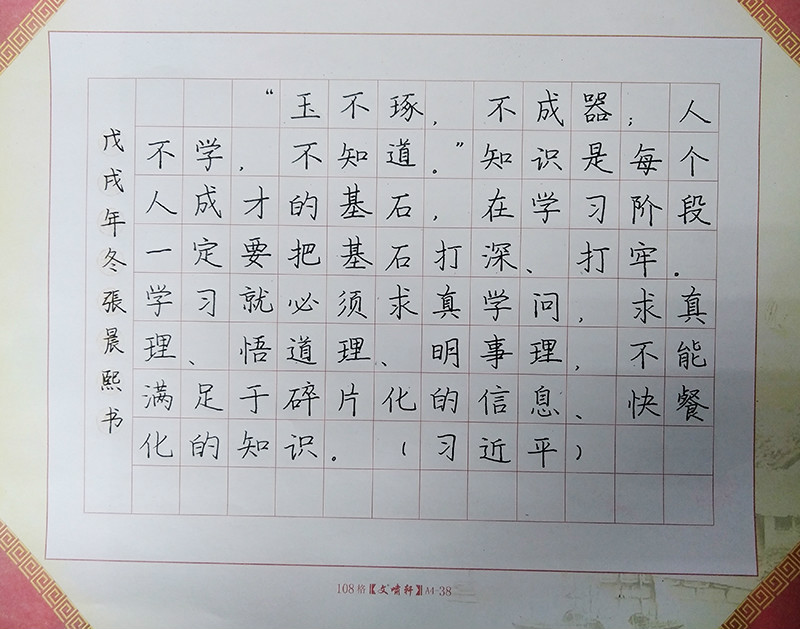 “玉不琢，不成器；人
不学，不知道。”知识是每个
人成才的基石，在学习阶段
一定要把基石打深、打牢。
学习就必须求真学问，求真
理、悟道理、明事理，不能
满足于碎片化的信息、快餐
化的知识。（习近平）
戊戌年冬張晨熙书
108格【文啸轩】A4-38